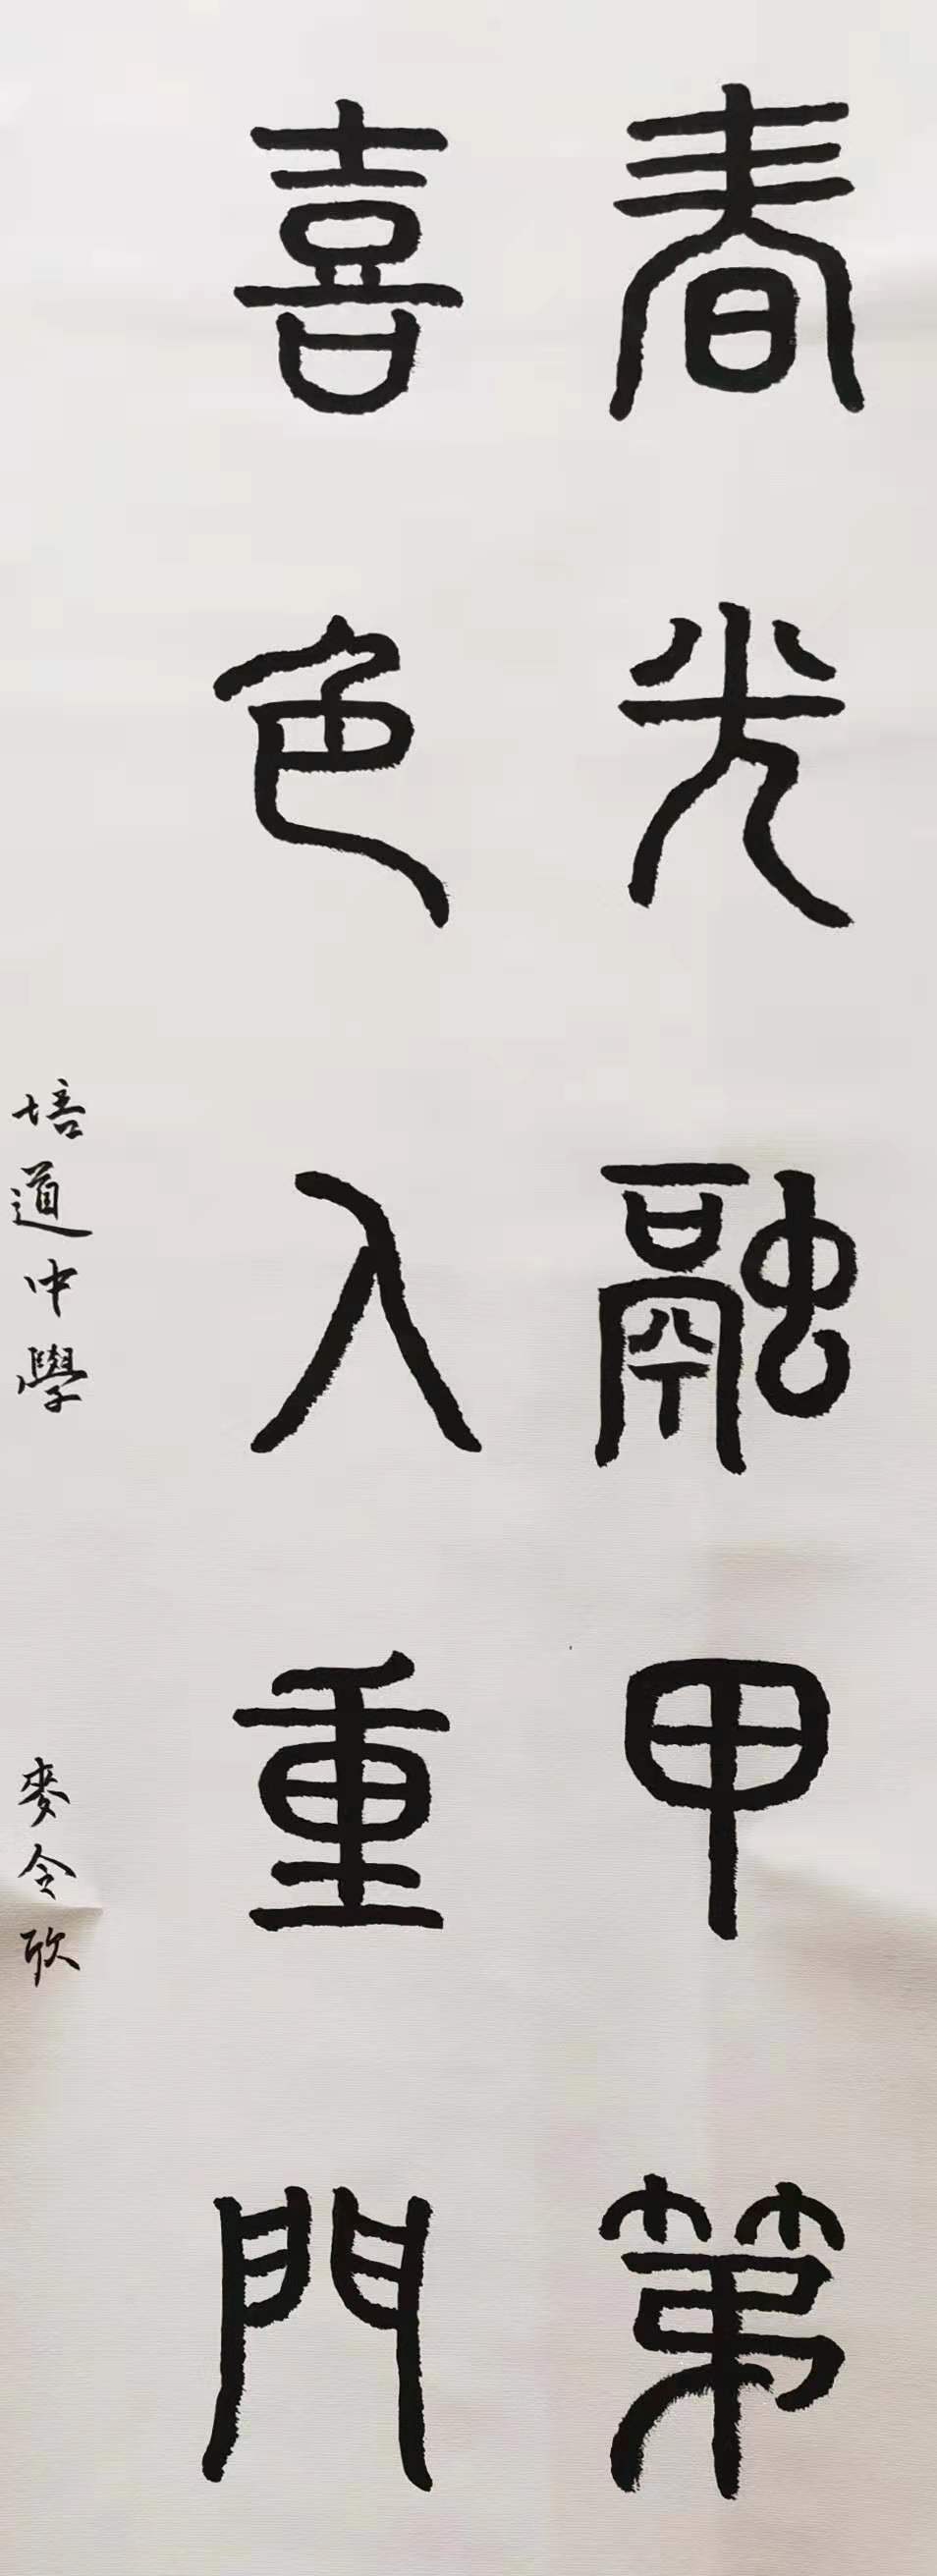 春光融甲第
喜色入重門
培道中學 麥令欣